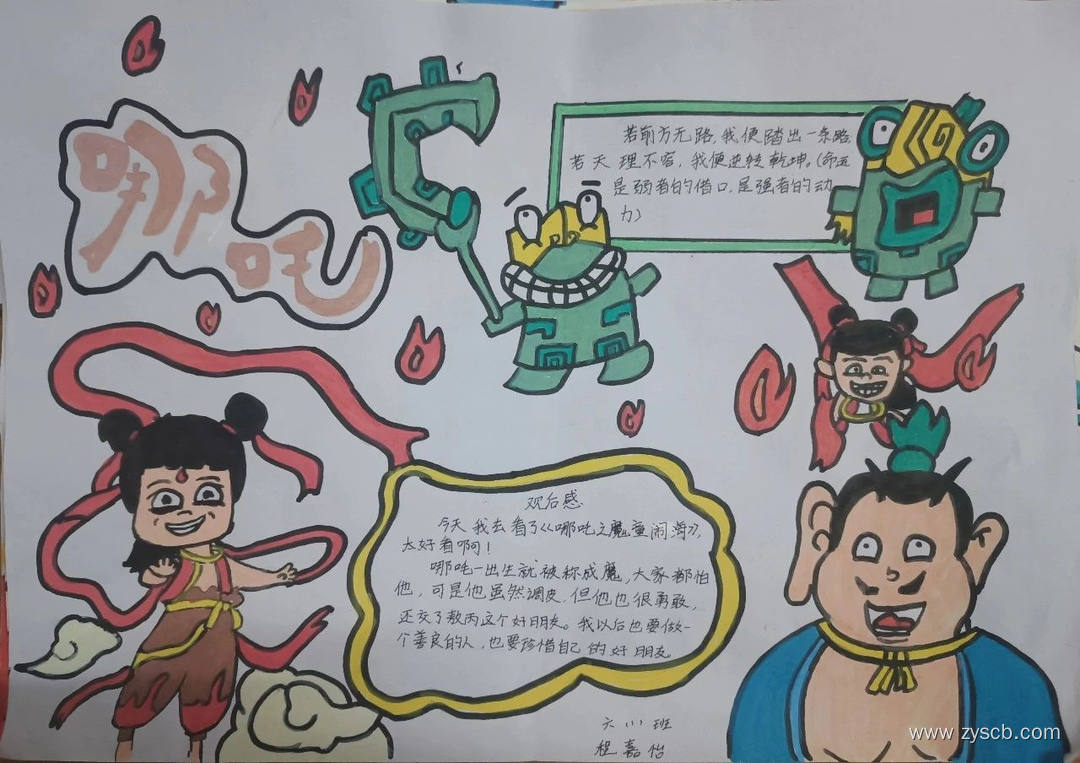 哪吒
若前方无路,我便踏出一条路,
若天理不容,我便逆转乾坤。(命运
是弱者的借口,是强者的动
力)
观后感
今天我去看了《哪吒之魔童闹海》,
太好看啊!
哪吒一出生就被称成魔,大家都怕
他,可是他虽然调皮,但他也很勇敢,
还交了敖丙这个好朋友。我以后也要做一
个善良的人,也要珍惜自己的好朋友。
六(1)班
程嘉怡
www.zyscb.com